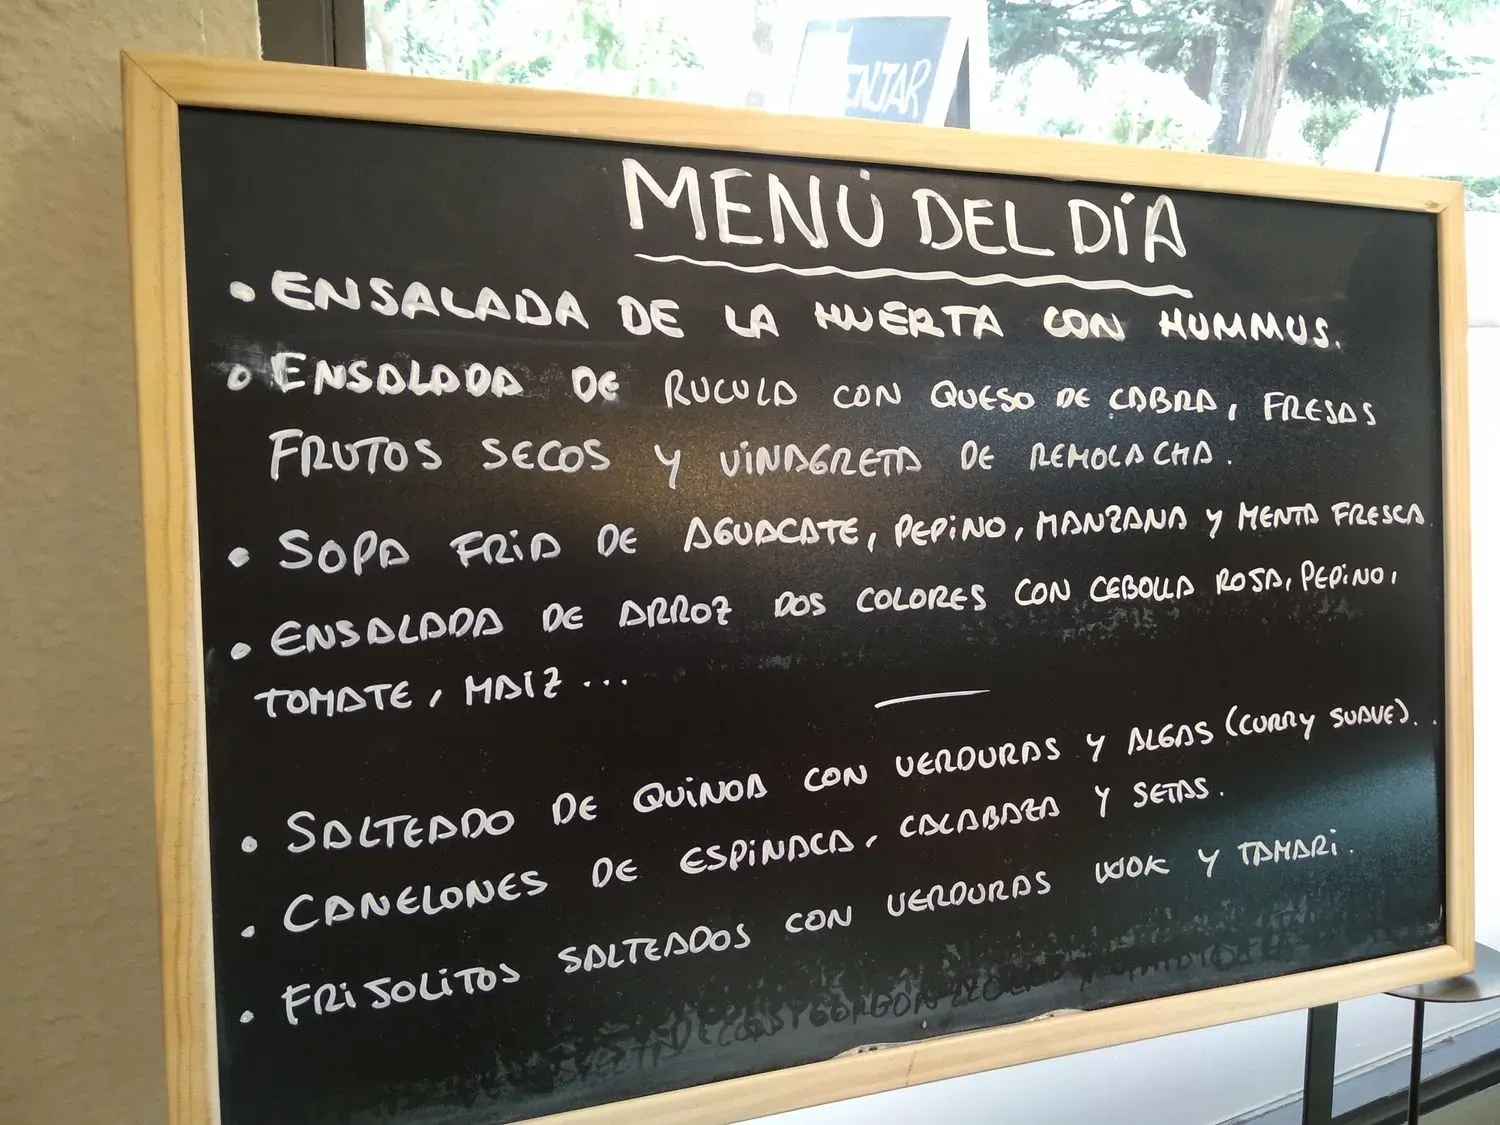 ENJAR
MENÚ DEL DÍA
• ENSALADA DE LA HUERTA CON HUMMUS.
• ENSALADA DE RUCULA CON QUESO DE CABRA, FRESAS
FRUTOS SECOS Y VINAGRETA DE REMOLACHA.
• SOPA FRIA DE AGUACATE, PEPINO, MANZANA Y MENTA FRESCA.
• ENSALADA DE ARROZ DOS COLORES CON CEBOLLA ROSA, PEPINO,
TOMATE, MAIZ ...
• SALTEADO DE QUINOA CON VERDURAS Y ALGAS (CURRY SUAVE)..
• CANELONES DE ESPINACA, CALABAZA Y SETAS.
• FRIJOLITOS SALTEADOS CON VERDURAS WOK Y TAMARI.